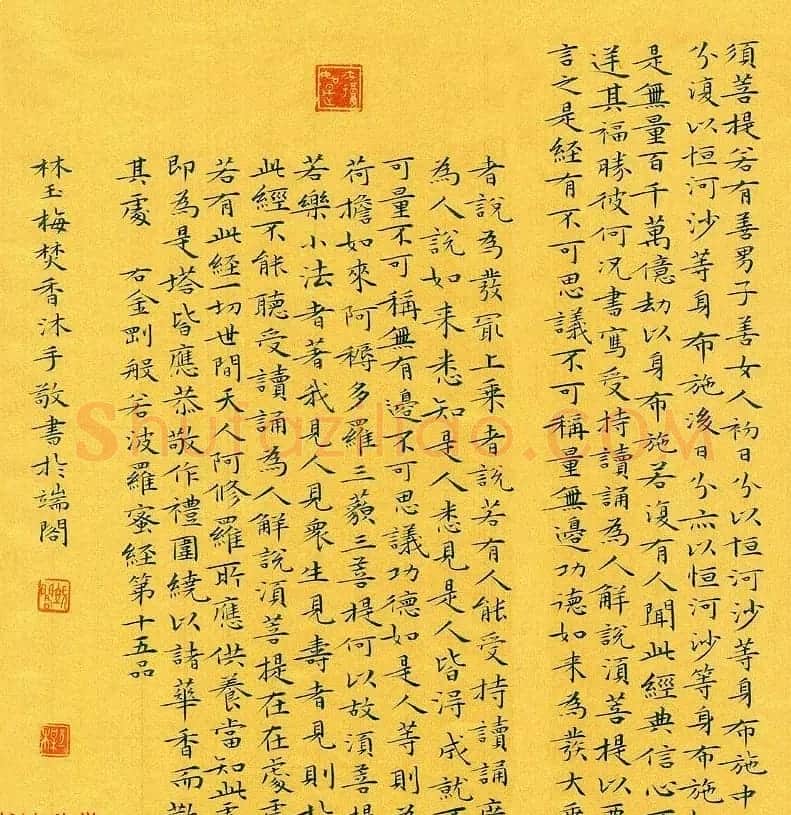 須菩提若有善男子善女人初日分以恒河沙等身布施中
分復以恒河沙等身布施後日分亦以恒河沙等身布施
是無量百千萬億劫以身布施若復有人聞此經典信心
逆其福勝彼何況書寫受持讀誦為人解說須菩提以
言之是經有不可思議不可稱量無邊功德如来為發大
者說為發冣上乘者說若有人能受持讀誦
為人說如来悉知是人悉見是人皆得成就
可量不可稱無有邊不可思議功德如是人等則
荷擔如來阿耨多羅三藐三菩提何以故須菩
若樂小法者著我見人見衆生見壽者見則
此經不能聽受讀誦為人解說須菩提在在處
若有此經一切世間天人阿修羅所應供養當知此
即為是塔皆應恭敬作禮圍繞以諸華香而
其處 右金剛般若波羅蜜經第十五品
林玉梅焚香沐手敬書於端閣
Shufaziliao.COM